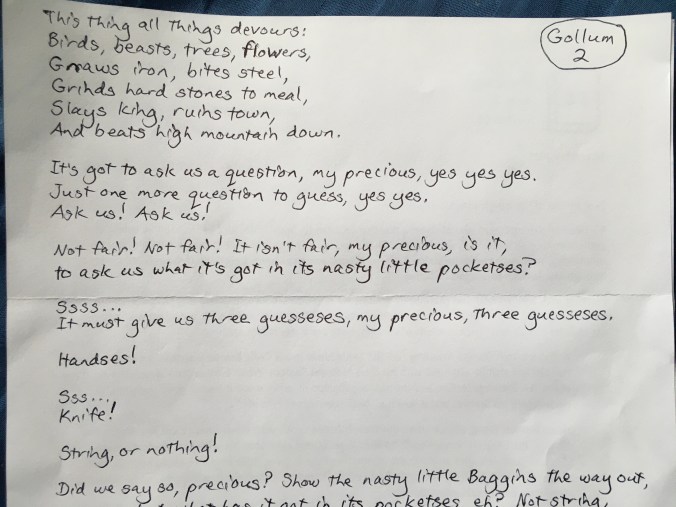 Gollum
2
This thing all things devours:
Birds, beasts, trees, flowers,
Gnaws iron, bites steel,
Grinds hard stones to meal,
Slays king, ruins town,
And beats high mountain down.
It's got to ask us a question, my precious, yes yes yes.
Just one more question to guess, yes yes.
Ask us! Ask us!
Not fair! Not fair! It isn't fair, my precious, is it,
to ask us what it's got in its nasty little pocketses?
Ssss...
It must give us three guesseses, my precious, three guesseses.
Handses!
Sss...
Knife!
String, or nothing!
Did we say so, precious? Show the nasty little Baggins the way out,
has it got in its pocketses eh? Not string,